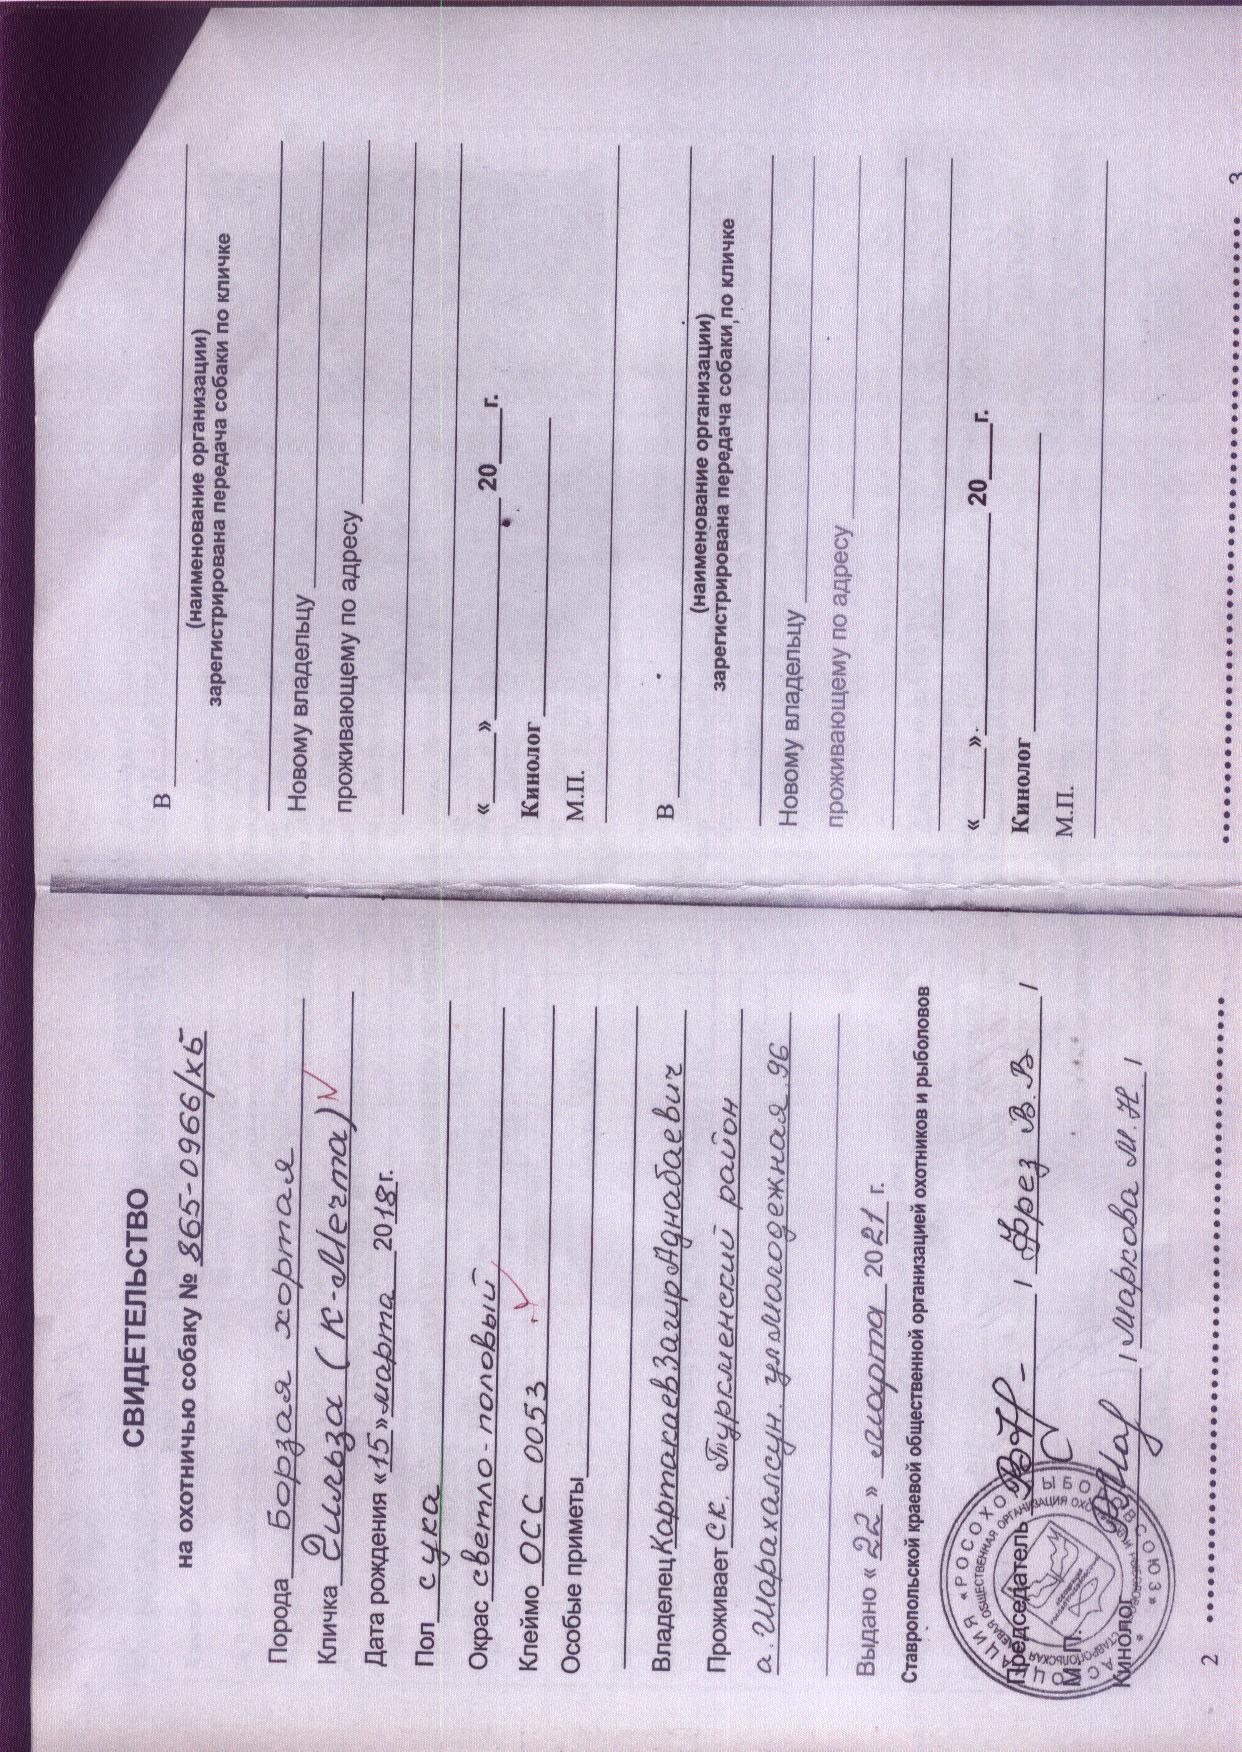 СВИДЕТЕЛЬСТВО
на охотничью собаку № 865-0966/кБ
Порода Борзая хортая
Кличка Гильза (К-Мечта)
Дата рождения «15» марта 2018г.
Пол сука
Окрас светло-половый
Клеймо ОСС 0053
Особые приметы
Владелец Картакаев Загир Аднабаевич
Проживает СК. Туркменский район
а. Шарахалсун. ул. Молодежная 96
Выдано «22» марта 2021 г.
Ставропольской краевой общественной организацией охотников и рыболовов
Председатель / Фрез В.В /
М.П.
Кинолог / Маркова М.Н /
2
В
(наименование организации)
зарегистрирована передача собаки по кличке
Новому владельцу
проживающему по адресу
« » 20 г.
Кинолог
М.П.
В
(наименование организации)
зарегистрирована передача собаки по кличке
Новому владельцу
проживающему по адресу
« » 20 г.
Кинолог
М.П.
3